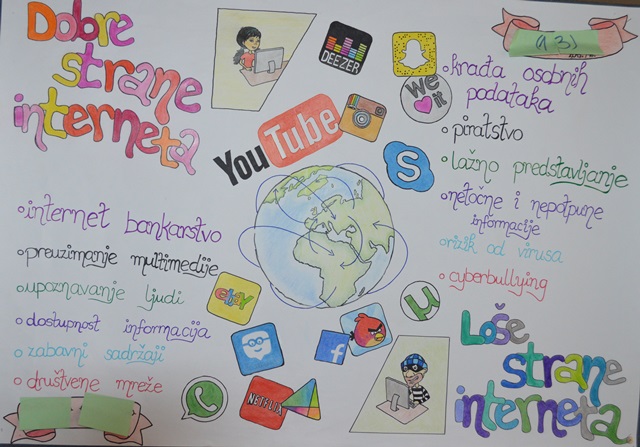 Dobre
strane
interneta
DEEZER
You Tube
we
it
internet bankarstvo
preuzimanje multimedije
upoznavanje ljudi
dostupnost informacija
zabavni sadržaji
društvene mreže
ebay
NETFLIX
f
µ
S
krađa osobnih
podataka
piratstvo
lažno predstavljanje
netočne i nepotpune
informacije
rizik od virusa
cyberbullying
Loše
strane
interneta